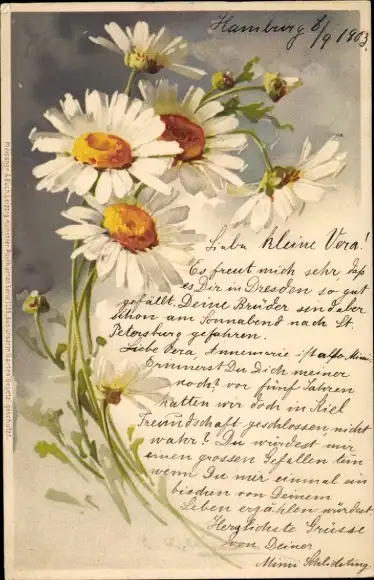 Hamburg 8/9 1903.
Liebe kleine Vera!
Es freut mich sehr daß
es Dir in Dresden so gut
gefällt. Deine Brüder sind aber
schon am Sonnabend nach St.
Petersburg gefahren.
Liebe Vera, Annemarie
Erinnerst Du Dich meiner
noch? vor fünf Jahren
hatten wir doch in Kiel
Freundschaft geschlossen nicht
wahr? Du würdest mir
einen grossen Gefallen tun
wenn Du mir einmal ein
bischen von Deinem
Leben erzählen würdest
Herzlichste Grüsse
von Deiner
Mimi Schlichting
Meissner & Buch, Leipzig, Künstler-Postkarten Serie